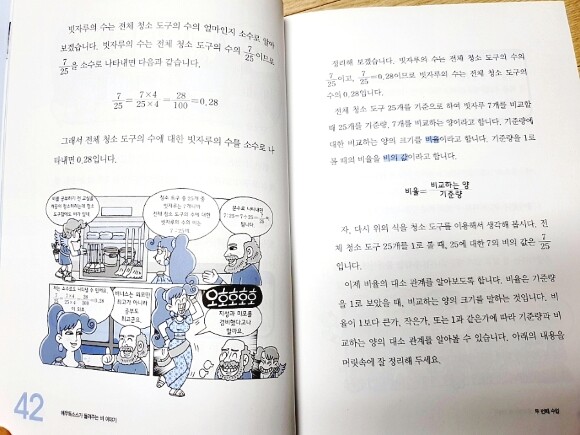 빗자루의 수는 전체 청소 도구의 수의 얼마인지 소수로 알아
보겠습니다. 빗자루의 수는 전체 청소 도구의 수의 7/25이므로
7/25을 소수로 나타내면 다음과 같습니다.
7/25 = 7×4/25×4 = 28/100 = 0.28
그래서 전체 청소 도구의 수에 대한 빗자루의 수를 소수로 나
타내면 0.28입니다.
청소 도구 중 25개 중
빗자루는 7개이다.
전체 청소 도구의 수에 대한
빗자루의 수의 비는
7 : 25
분수로 나타내면
7:25=7÷25=7/25
입니다.
저는 소수로도 나타낼 수 있어요.
7/25 = 7×4/25×4 = 28/100 = 0.28
이 되요.
미네르바는 외모만
최고가 아니라
공부도
최고군요.
오호호호호
지성과 미모를
겸비했다고나
할까요.
42
에우독소스가 들려주는 비 이야기
정리해 보겠습니다. 빗자루의 수는 전체 청소 도구의 수의
7/25이고, 7/25=0.28이므로 빗자루의 수는 전체 청소 도구의
수의 0.28입니다.
전체 청소 도구 25개를 기준으로 하여 빗자루 7개를 비교할
때 25개를 기준량, 7개를 비교하는 양이라고 합니다. 기준량에
대한 비교하는 양의 크기를 비율이라고 합니다. 기준량을 1로
볼 때의 비율을 비의 값이라고 합니다.
비율= 비교하는 양/기준량
자, 다시 위의 식을 청소 도구를 이용해서 생각해 봅시다. 전
체 청소 도구 25개를 1로 볼 때, 25에 대한 7의 비의 값은 7/25
입니다.
이제 비율의 대소 관계를 알아보도록 합니다. 비율은 기준량
을 1로 보았을 때, 비교하는 양의 크기를 말하는 것입니다. 비
율이 1보다 큰가, 작은가, 또는 1과 같은가에 따라 기준량과 비
교하는 양의 대소 관계를 알아볼 수 있습니다. 아래의 내용을
머릿속에 잘 정리해 두세요.
두 번째 수업